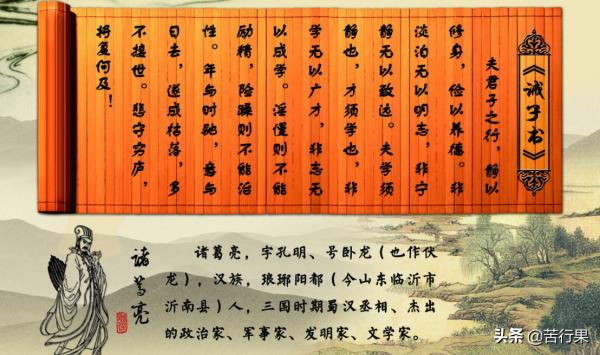 《诫子书》
夫君子之行，静以
修身，俭以养德。非
淡泊无以明志，非宁
静无以致远。夫学须
静也，才须学也，非
学无以广才，非志无
以成学。淫慢则不能
励精，险躁则不能治
性。年与时驰，意与
日去，遂成枯落，多
不接世。悲守穷庐，
将复何及！
诸葛亮
诸葛亮，字孔明、号卧龙（也作伏
龙），汉族，琅琊阳都（今山东临沂市
沂南县）人，三国时期蜀汉丞相、杰出
的政治家、军事家、发明家、文学家。
头条 @苦行果